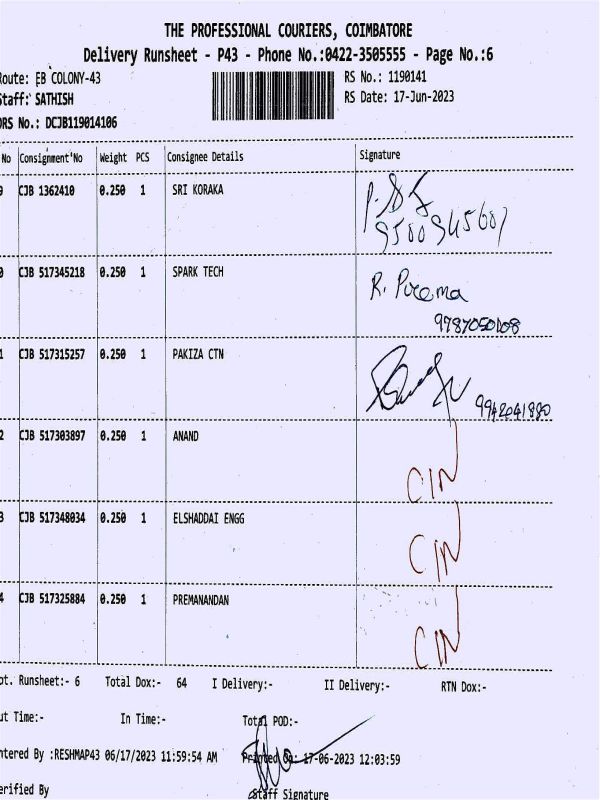 THE PROFESSIONAL COURIERS, COIMBATORE
Delivery Runsheet - P43 - Phone No.:0422-3505555 - Page No.:6
Route: EB COLONY-43 RS No.: 1190141
Staff: SATHISH RS Date: 17-Jun-2023
DRS No.: DCJB119014106
No Consignment No Weight PCS Consignee Details Signature
9 CJB 1362410 0.250 1 SRI KORAKA
0 CJB 517345218 0.250 1 SPARK TECH R. Poorma
9787050108
1 CJB 517315257 0.250 1 PAKIZA CTN
9942041880
2 CJB 517303897 0.250 1 ANAND CIN
3 CJB 517348034 0.250 1 ELSHADDAI ENGG CIN
4 CJB 517325884 0.250 1 PREMANANDAN CIN
ot. Runsheet:- 6 Total Dox:- 64 I Delivery:- II Delivery:- RTN Dox:-
ut Time:- In Time:- Total POD:-
ntered By :RESHMAP43 06/17/2023 11:59:54 AM Printed On: 17-06-2023 12:03:59
erified By Staff Signature